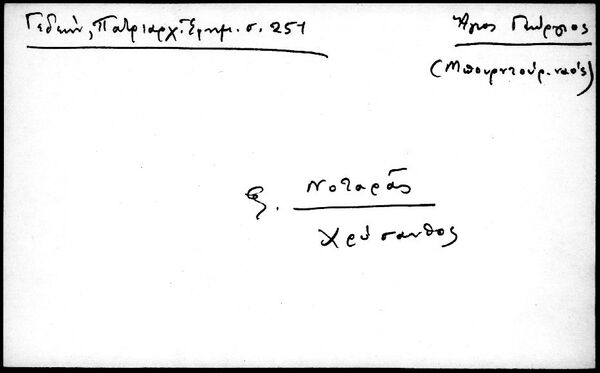 Γεδεών, Πατριαρχ. Ἐφημ. σ. 251
Ἅγιος Γεώργιος
(Μπουρντούρ. ναός)
Νοταρᾶς
Χρύσανθος